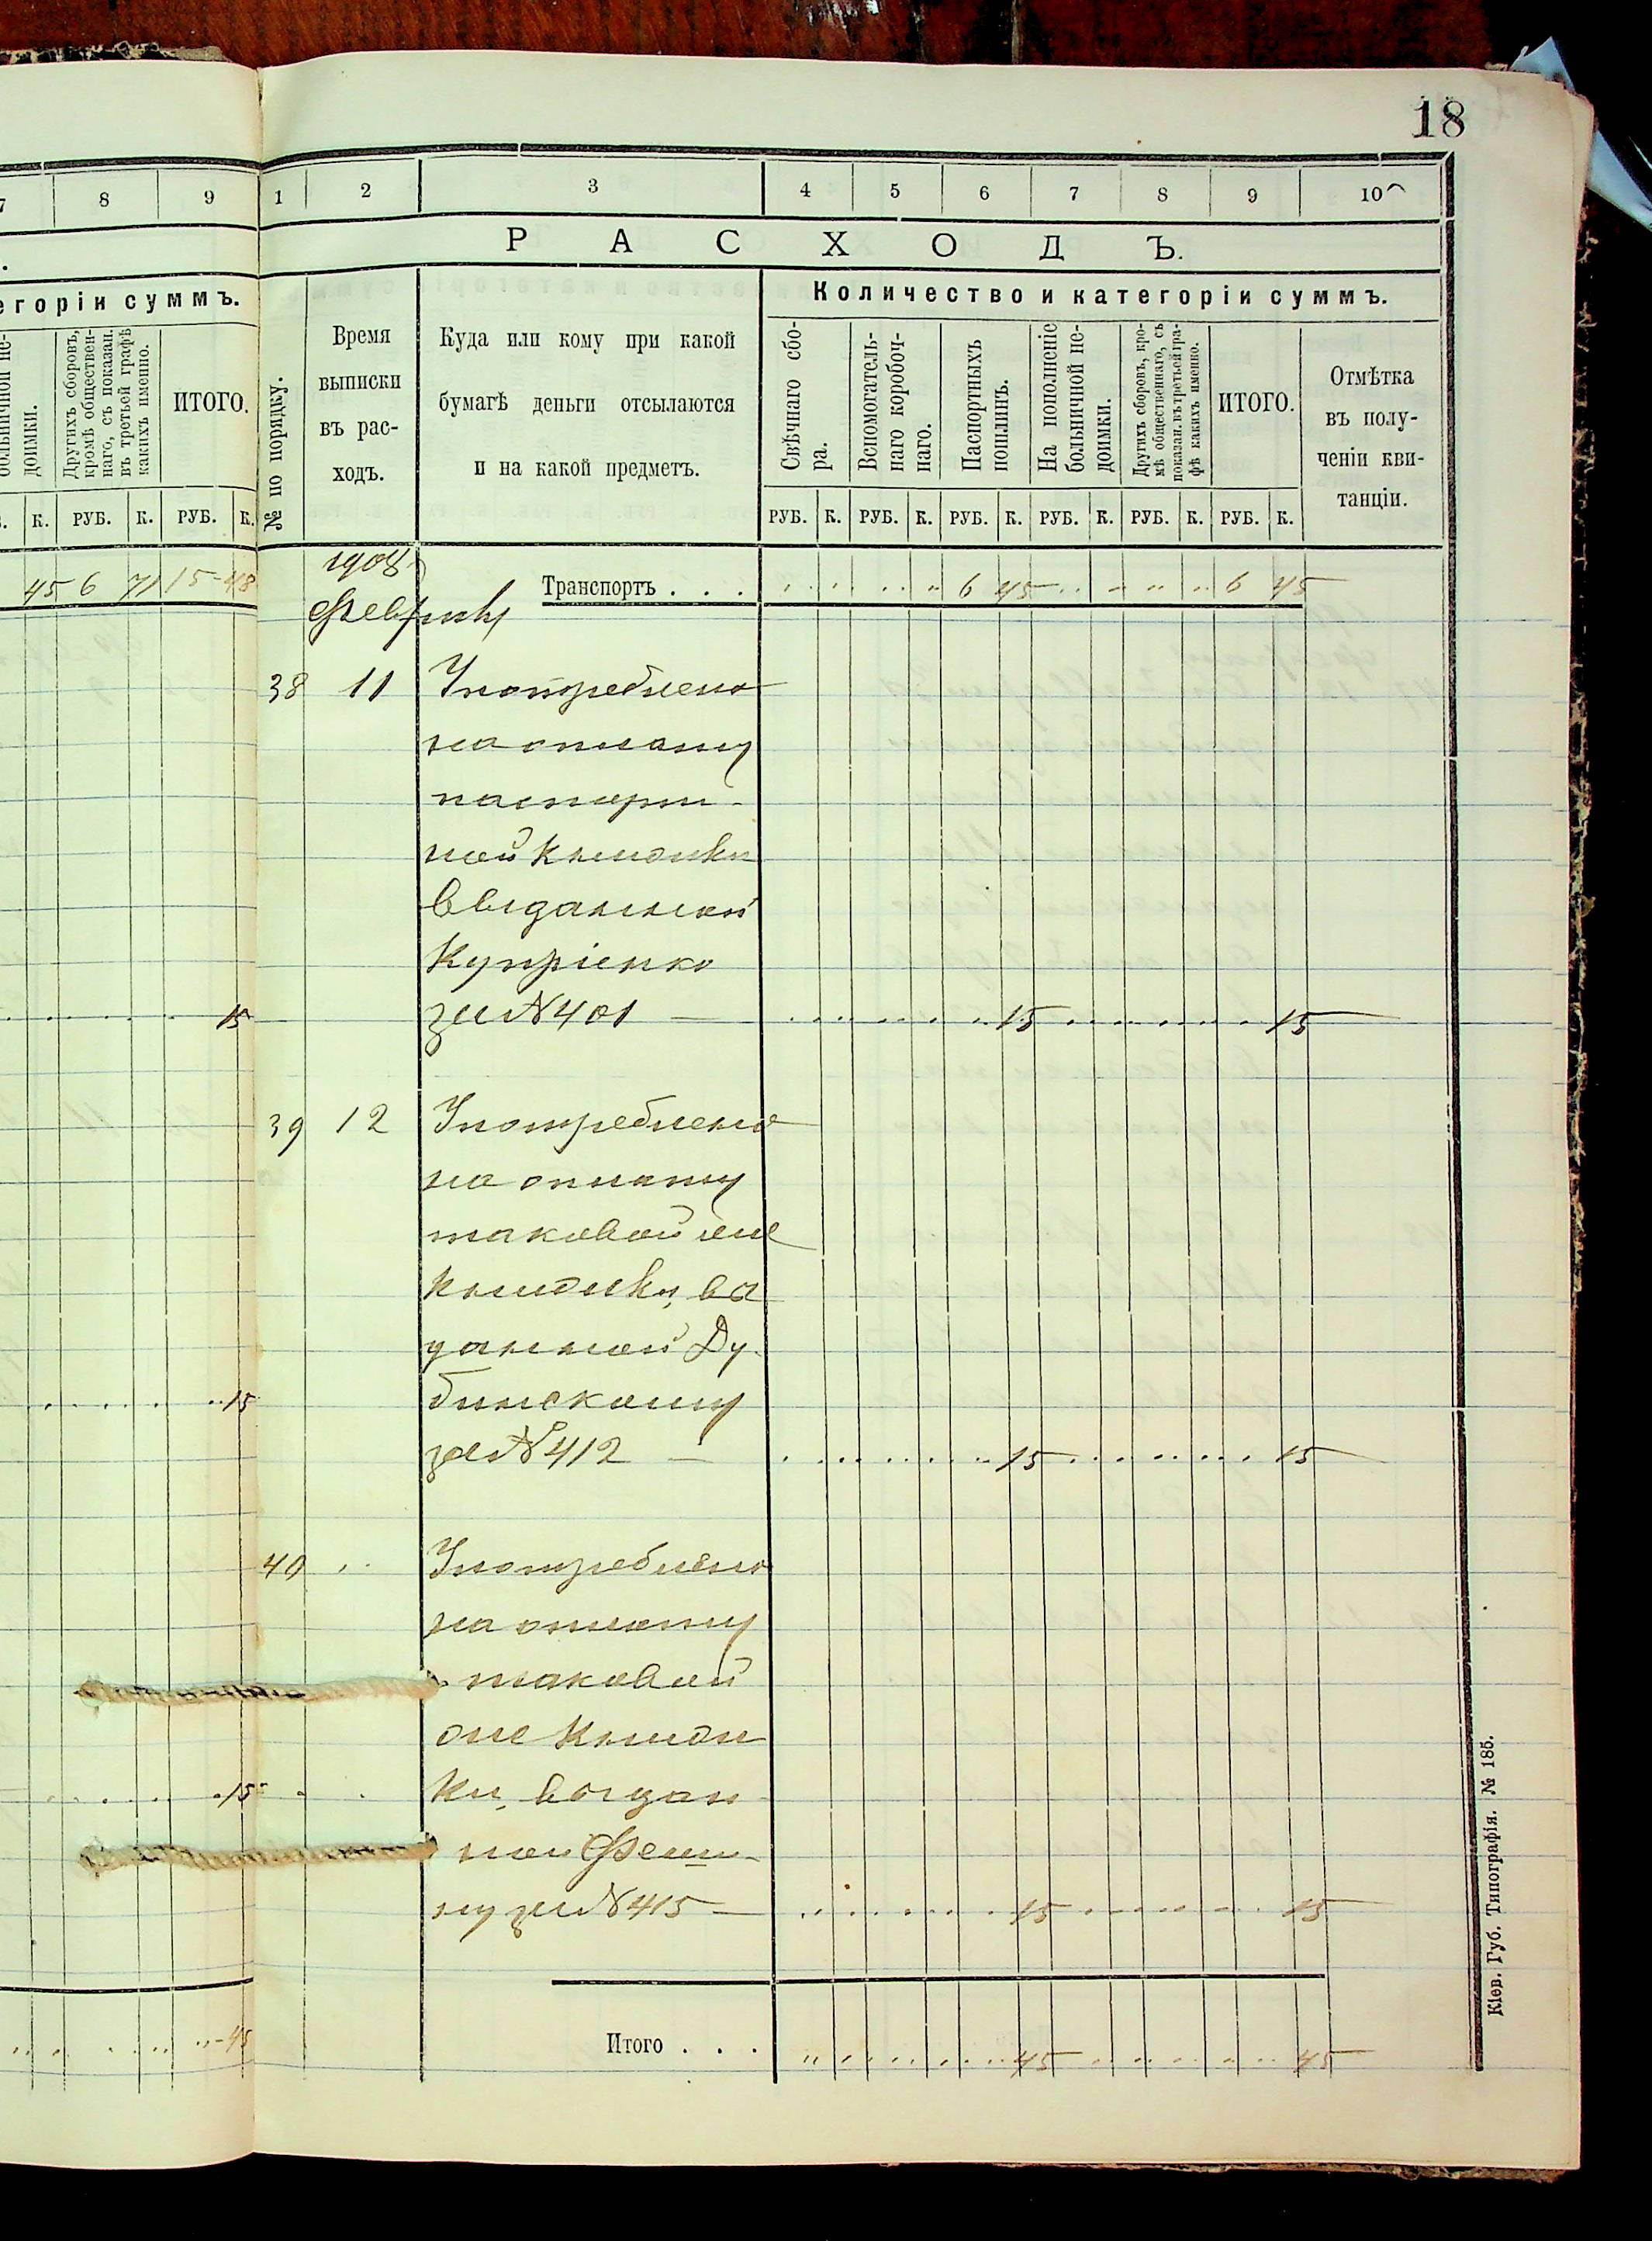 18
7 8 9 1 2 3 4 5 6 7 8 9 10
РАСХОДЪ.
егоріи суммъ.
Количество и категоріи суммъ.
больничной не-
доимки.
Другихъ сборовъ,
кромѣ обществен-
наго, съ показан.
въ третьей графѣ
какихъ именно.
ИТОГО.
№ по порядку.
Время
выписки
въ рас-
ходъ.
Куда или кому при какой
бумагѣ деньги отсылаются
и на какой предметъ.
Свѣчнаго сбо-
ра.
Вспомогатель-
наго коробоч-
наго.
Паспортныхъ
пошлинъ.
На пополненіе
больничной не-
доимки.
Другихъ сборовъ, кро-
мѣ общественнаго, съ
показан. въ третьей гра-
фѣ какихъ именно.
ИТОГО.
Отмѣтка
въ полу-
ченіи кви-
танціи.
К. РУБ. К. РУБ. К.
РУБ. К. РУБ. К. РУБ. К. РУБ. К. РУБ. К. РУБ. К.
45 6 71 15-48
1908
Транспортъ . . . 6 45 6 45
Февраль
38 11 Употреблено
на оплату
паспорт-
ной книжки
выданной
Купріенко
15 за № 401 — 15 15
39 12 Употреблено
на оплату
таковой же
книжки, вы
данной Ду-
15 бинскому
за № 412 — 15 15
40 Употреблено
на оплату
таковой
же книж
15 ки, выдан
ной
за № 415 — 15 15
45 Итого . . . 45 45
Кіев. Губ. Типографія. № 185.